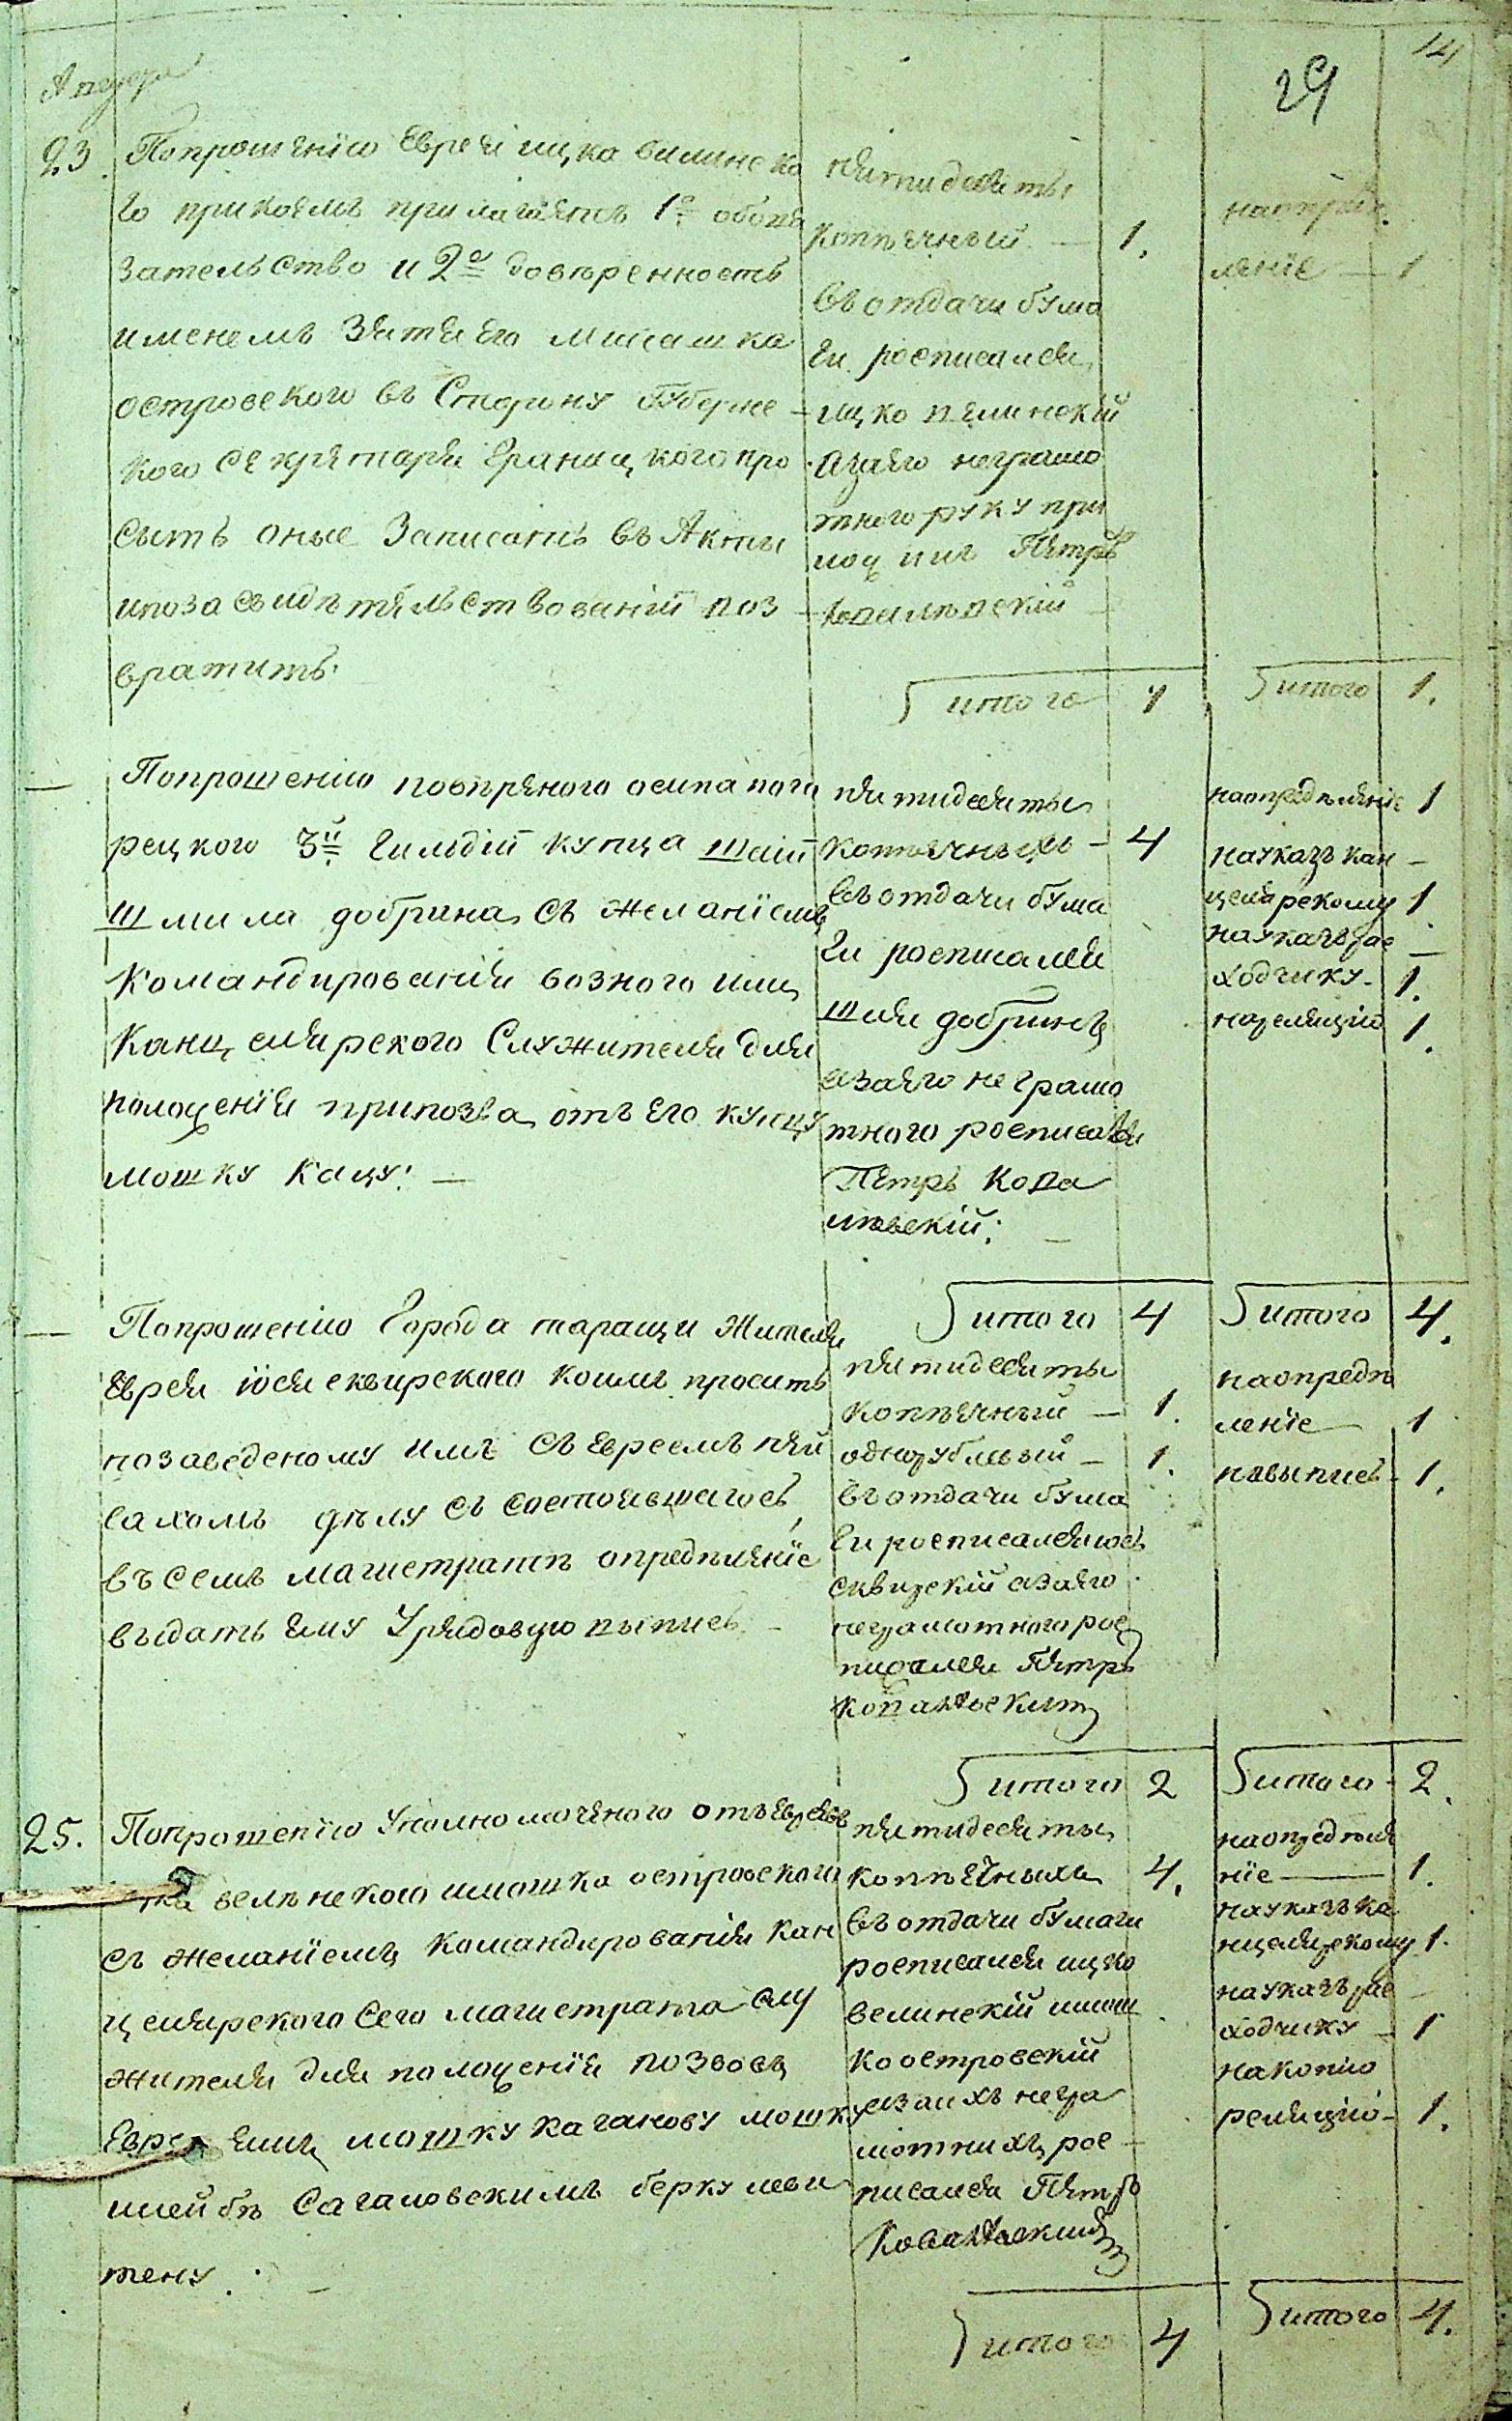 14
29
23.
Попрошенію Еврея ицка вилинско
го прикоемъ прилагаетъ 1е обоя
зательство и 2е довѣренность
именемъ Зятя его мошка
островского въ Сторону Губернс
кого секретаря Границкого про
сытъ оные Записать въ Акты
ипозасвидѣтельствованіи воз
вратить.
пятидесяты
копѣечный — 1.
Въ отдачи бума
ги росписался
ицко велинскій
азаего неграмо
тного руку при
лож илъ Петръ
Ковалѣвскій
наопредѣ
леніе — 1
итого 1
итого 1.
— Попрошенію повѣреного осипа пого
рецкого 3й Гилдіи купца шаи
шмила добрина съ желаніемъ
Командированія возного или
Канцелярского Служителя для
положенія припозва отъ его купцу
мошку Кацу. —
пятидесяты
копѣечныхъ — 4
въ отдачи бума
ги росписался
шая добринъ
азаего неграмо
тного росписался
Петръ Кова
лѣвскій. —
наопредѣленіе 1
науказъ кан —
целярскому 1
науказъ рас —
ходчику — 1.
нареляцію 1.
итого 4
итого 4.
— Попрошенію Города таращи Жителя
Еврея іося сквирского коимъ проситъ
позаведеному имъ съ Евреемъ пей
сахомъ дѣлу съ состоявшагось
въ семъ магистратѣ опредѣленіе
выдать ему Урядовую выпись. —
пятидесяты
копѣечный — 1.
однорублевый — 1.
въ отдачи бума
ги росписался іось
сквирскій азаего
неграмотного рос
писался Петръ
Ковалѣвскій
наопредѣ
леніе — 1
навыпись — 1.
итого 2
итого 2.
25. Попрошенію Уполномоченого отъ Евреевъ
велѣнского имошка островского
съ желаніемъ Командированія Кан
целярского Сего магистрата слу
жителя для положенія позвовъ
Евреямъ мошку каганову мошку
илейбѣ Сагаловскимъ берку леви
тену. —
пятидесяты
копѣечныхъ 4.
въ отдачи бумаги
росписался ицко
велинскій имош
ко островскій
азаихъ негра
мотнихъ рос —
писался Петръ
Ковалѣвскій
наопредѣле
ніе — 1.
науказъ ка
нцелярскому 1.
науказъ рас —
ходчику — 1
накопію
реляцію — 1.
итого 4
итого 4.